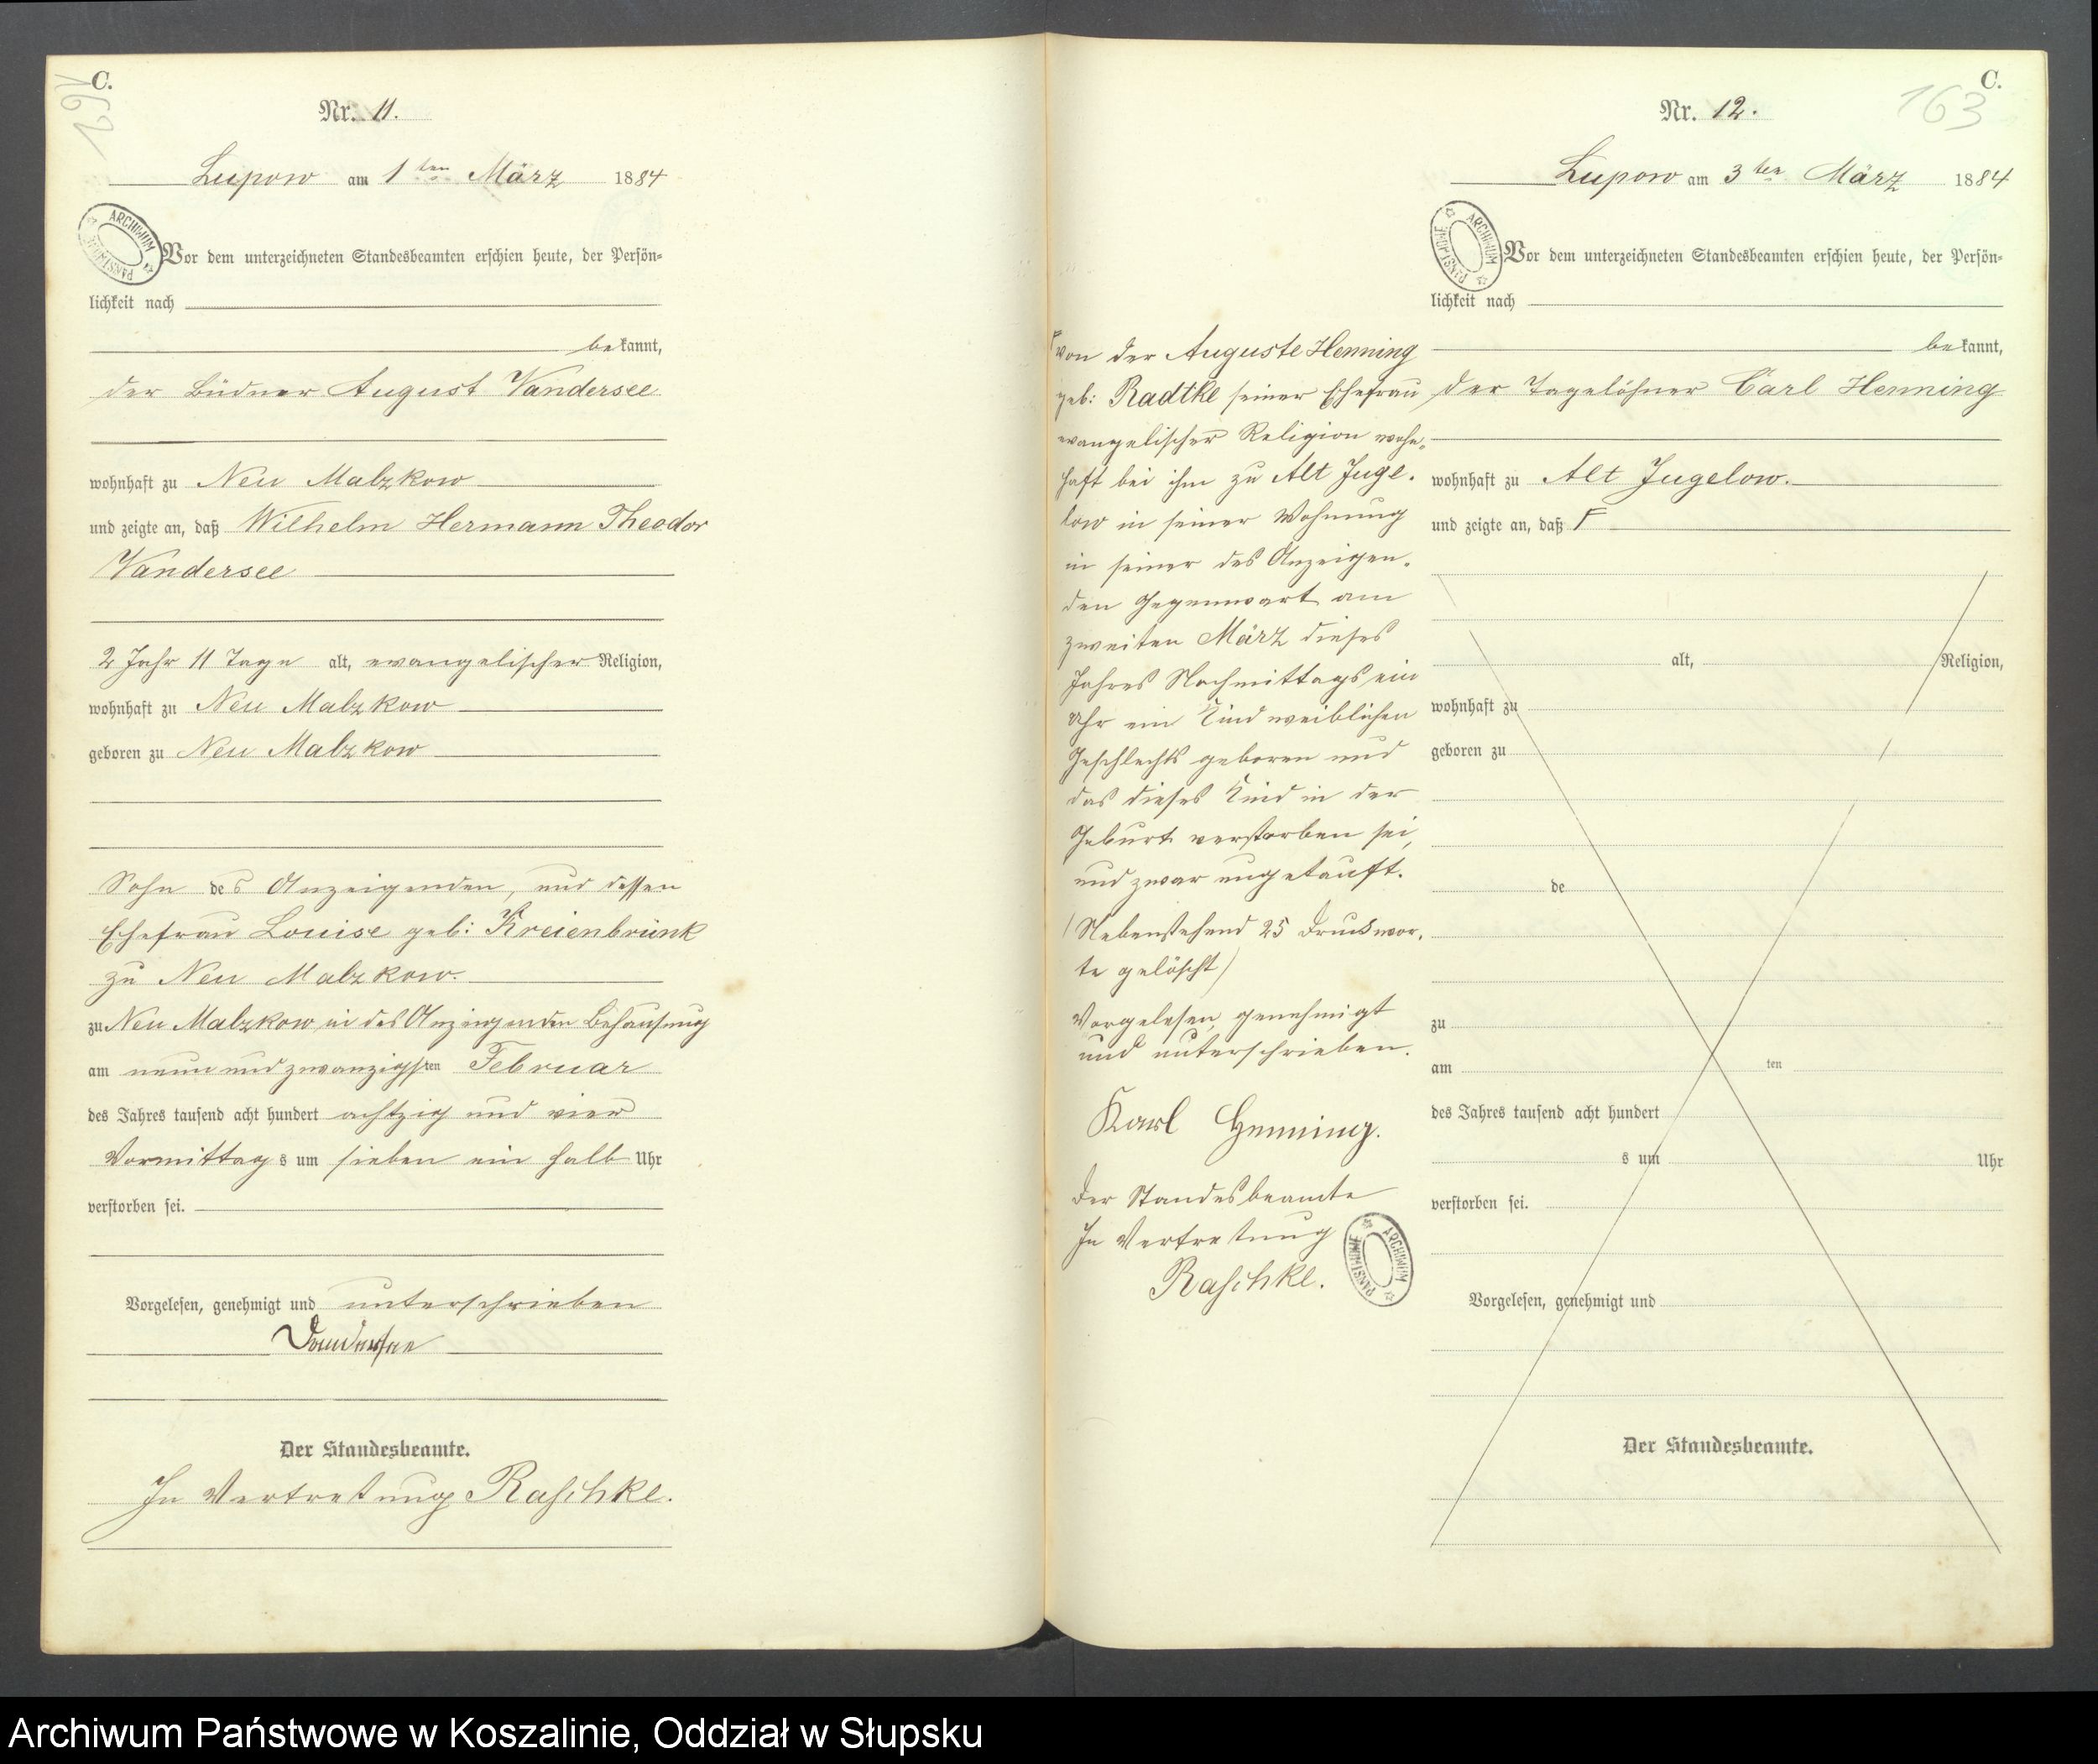 C.
162
Nr. 11.
Lupow am 1 ten März 1884
ARCHIWUM PAŃSTWOWE
Vor dem unterzeichneten Standesbeamten erschien heute, der Persön-
lichkeit nach
bekannt,
der Büdner August Vandersee
wohnhaft zu Neu Malzkow
und zeigte an, daß Wilhelm Hermann Theodor
Vandersee
2 Jahr 11 Tage alt, evangelischer Religion,
wohnhaft zu Neu Malzkow
geboren zu Neu Malzkow
Sohn des Anzeigenden, und dessen
Ehefrau Louise geb: Kreienbrink
zu Neu Malzkow.
zu Neu Malzkow in des Anzeigenden Behausung
am neun und zwanzigsten Februar
des Jahres tausend acht hundert achtzig und vier
Vormittags um sieben ein halb Uhr
verstorben sei.
Vorgelesen, genehmigt und unterschrieben
Vandersee
Der Standesbeamte.
In Vertretung Raschke.
C.
163
Nr. 12.
Lupow am 3 ten März 1884
ARCHIWUM PAŃSTWOWE
Vor dem unterzeichneten Standesbeamten erschien heute, der Persön-
lichkeit nach
bekannt,
der Tagelöhner Carl Henning
wohnhaft zu Alt Jugelow.
und zeigte an, daß F
alt, Religion,
wohnhaft zu
geboren zu
de
zu
am ten
des Jahres tausend acht hundert
s um Uhr
verstorben sei.
Vorgelesen, genehmigt und
Der Standesbeamte.
F von der Auguste Henning
geb: Radtke seiner Ehefrau
evangelischer Religion wohn-
haft bei ihm zu Alt Juge-
low in seiner Wohnung
in seiner des Anzeigen-
den Gegenwart am
zweiten März dieses
Jahres Nachmittags ein
Uhr ein Kind weiblichen
Geschlechts geboren und
das dieses Kind in der
Geburt verstorben sei,
und zwar ungetauft.
(Nebenstehend 25 Druckwor-
te gelöscht)
Vorgelesen, genehmigt
und unterschrieben.
Karl Henning.
Der Standesbeamte
In Vertretung
Raschke.
ARCHIWUM PAŃSTWOWE
Archiwum Państwowe w Koszalinie, Oddział w Słupsku